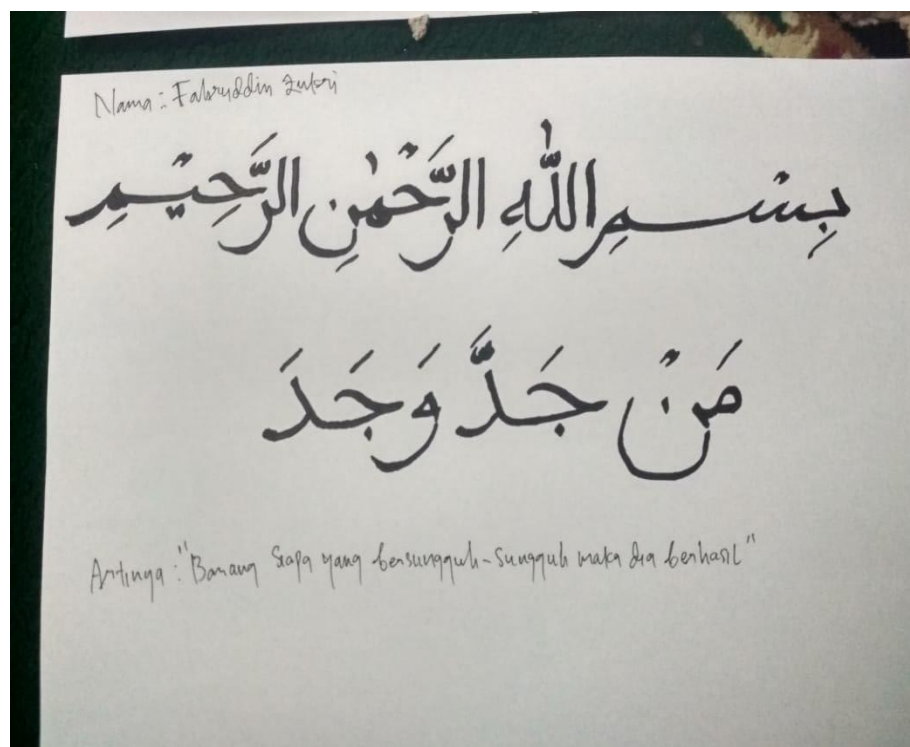 Nama : Fahruddin Zukri
بِسْمِ اللّٰهِ الرَّحْمٰنِ الرَّحِيْمِ
مَنْ جَدَّ وَجَدَ
Artinya : "Barang siapa yang bersungguh-sungguh maka dia berhasil"